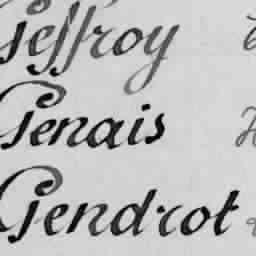 Geffroy
Genais
Gendrot